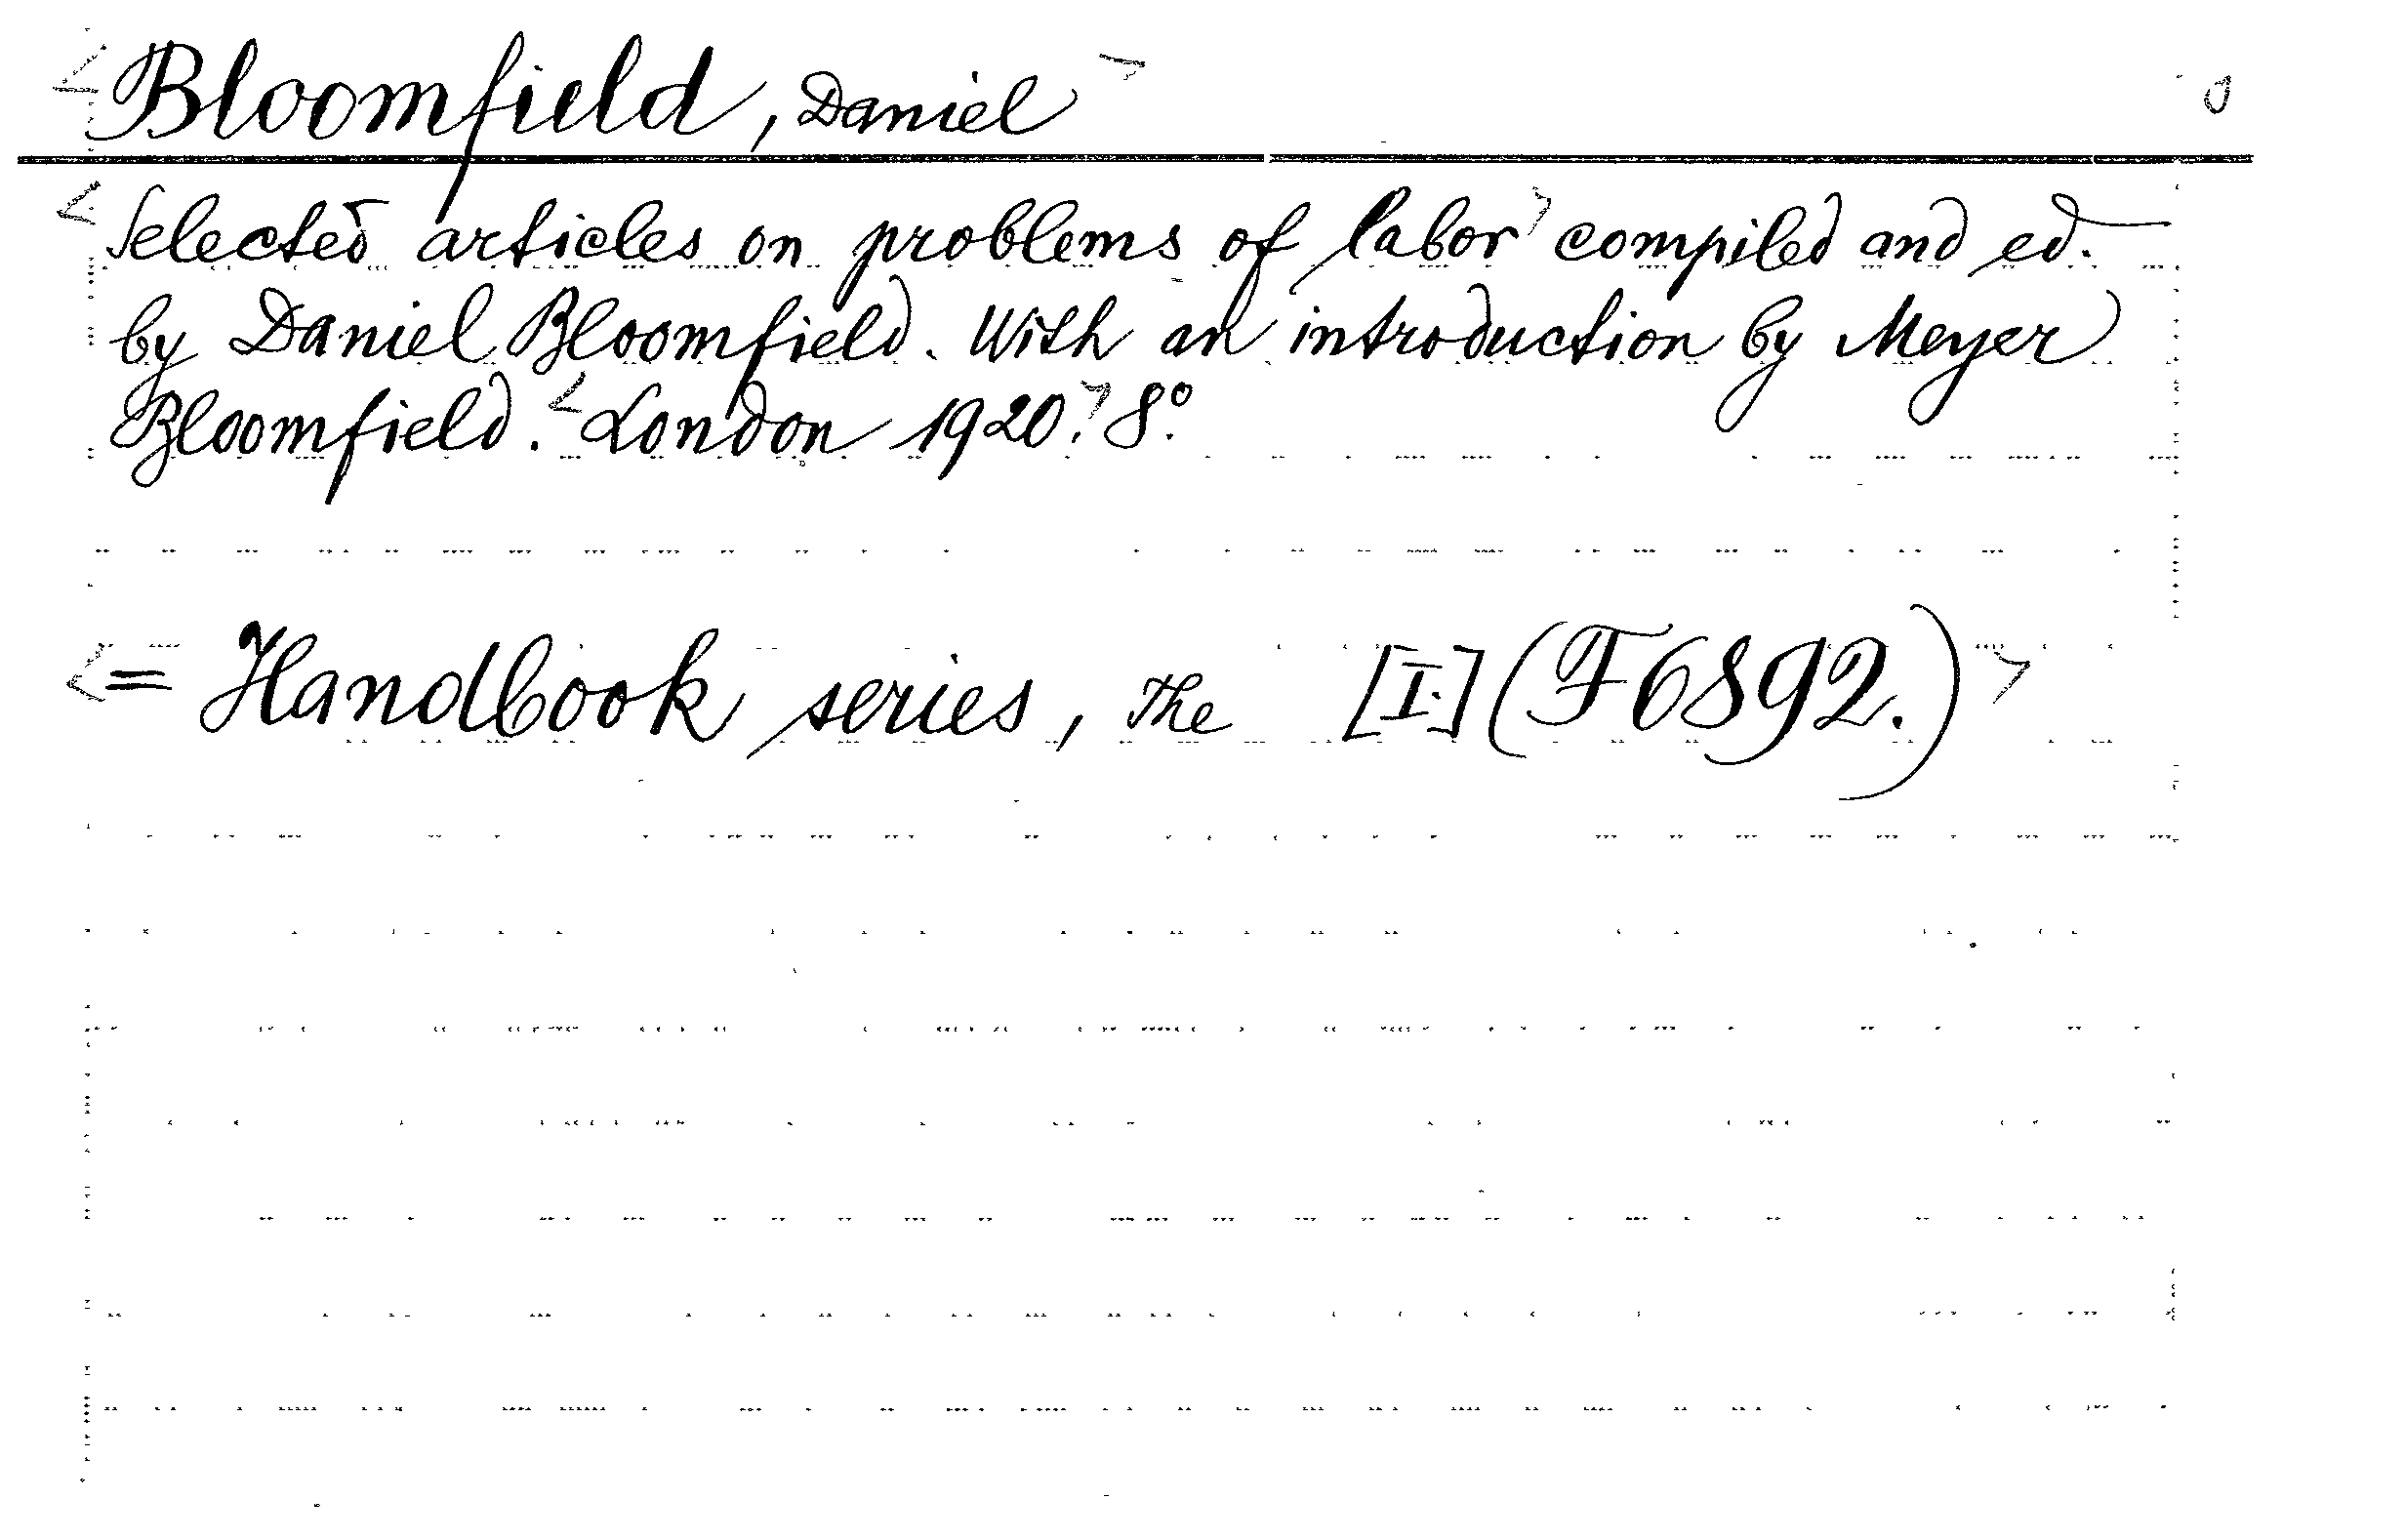 <Bloomfield, Daniel>
<Selected articles on problems of labor> compiled and ed.
by Daniel Bloomfield. With an introduction by Meyer
Bloomfield. <London 1920.> 8º.
<= Handbook series, The [I.] (F6892.)>